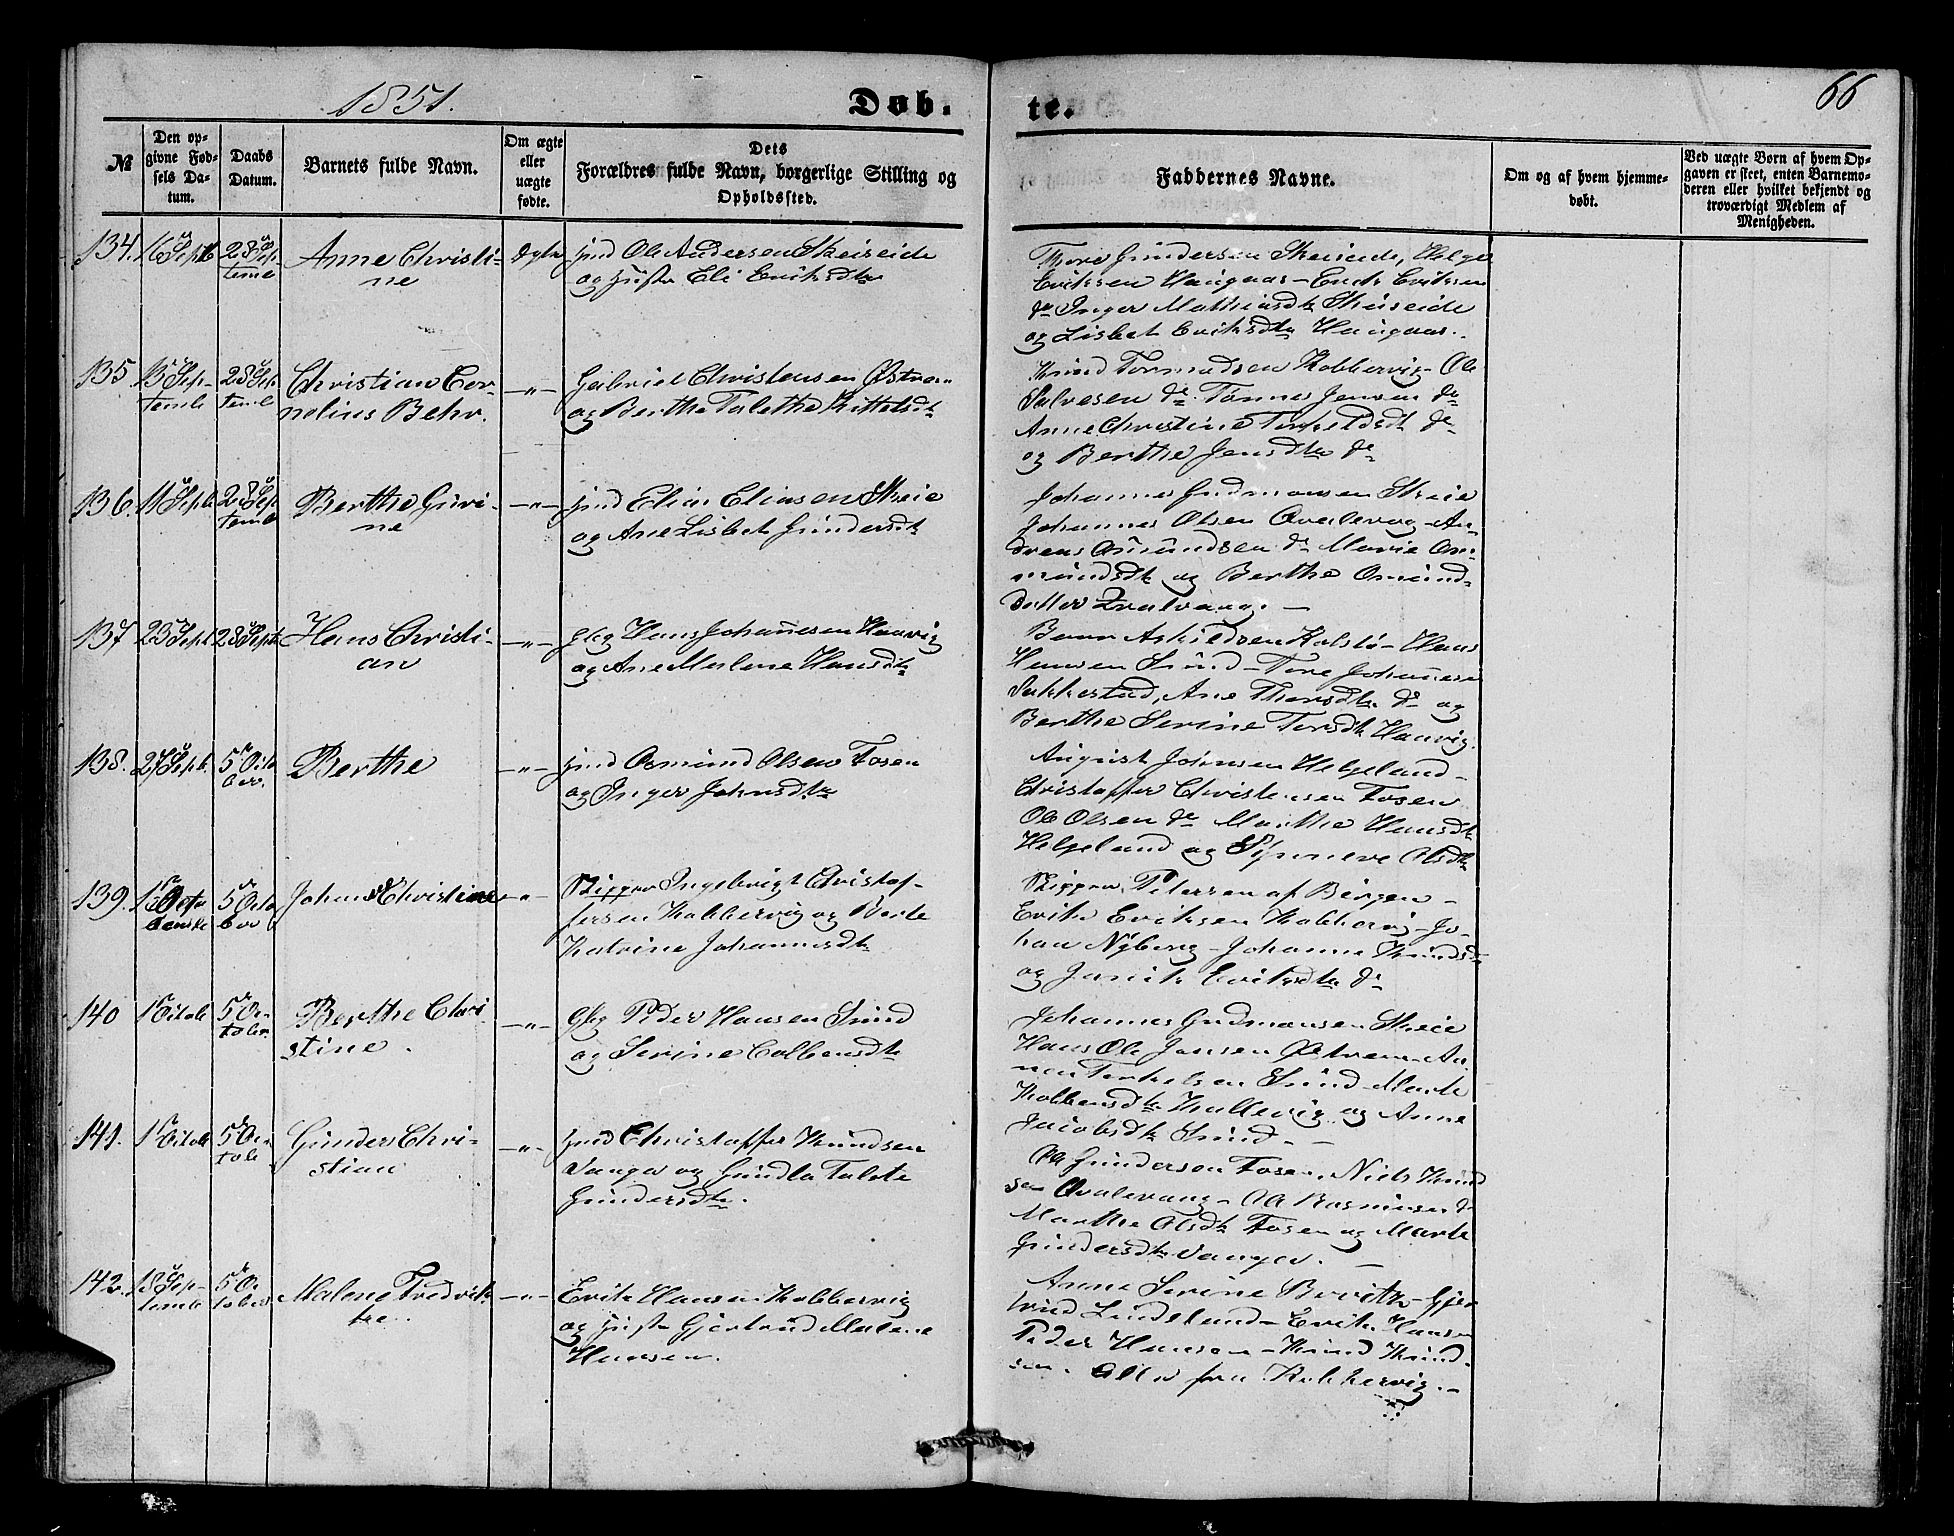 1851.
Døb.
te.
66
№
Den op-
givne Fød-
sels Da-
tum.
Daabs
Datum.
Barnets fulde Navn.
Om ægte
eller
uægte
fødte.
Dets
Forældres fulde Navn, borgerlige Stilling og
Opholdssted.
Faddernes Navne.
Om og af hvem hjemme-
døbt.
Ved uægte Børn af hvem Op-
gaven er skeet, enten Barnemo-
deren eller hvilket bekjendt og
troværdigt Medlem af
Menigheden.
134. 16 Sept 28 Sep
temb
Anne Christi-
ne
Ægte
Ole Andersen Skeiseide
og Eli Eriksdtr
Tore Gundersen Skeiseide, Helge
Eriksen Haugaas - Eriksen
do Inger Mathiasdtr Skeiseide
og Lisbet Eriksdtr Haugaas.
135. 15 Sep-
temb
28 Sep
temb
Christian Cor-
nelius Behr.
-"-
Gabriel Christensen Østrem
og Berthe Talethe Kittelsdtr
Knud Tormodsen Kobbervig - Ole
Salvesen do Tønnes Jensen do
Anne Christine Torkeldsdt do
og Berthe Jensdtr do
136. 11 Septb 28 Sep
temb
Berthe Guri-
ne
-"-
Elias Eliasen Skeie
og Ane Lisbet Gundersdt
Johannes Gudmonsen Skeie
Johannes Olsen Qvalevog - An-
dreas Omundsen do Marie Om-
mundsdt og Berthe Omund-
datter Qvalvaag. -
137 23 Sept 28 Sept
Hans Christi-
an
-"-
Hans Johannesen Haavig
og Ane Malene Hansdtr
Askildsen Kolstø - Hans
Hansen Sund - Tore Johannesen
Sakkestad, Ane Thorsdtr do og
Berthe Serine Torsdtr Haavig.
138. 27 Sept. 5 Octo
ber.
Berthe
-"-
Osmund Olsen Fosen
og Inger Johnsdtr
August Johnsen Helgeland -
Christoffer Christensen Fosen
Ole Olsen do Marthe Hansdtr
Helgeland og Synneve Olsdtr
139. 5 Octo
ber
Christine
-"-
Skipper Ingebrigt Christof-
fersen Kobbervig og Berte
Katrine Johannesdtr
Skipper Petersen af Bergen -
Erik Eriksen Kobbervig - Jo-
han Nyberg - Johanne Knudsdtr
og Janik Eriksdtr do
140 1 Octob 5 Oc-
tober.
Berthe Chri
stine.
-"-
Peder Hansen Sund
og Serine Colbensdtr
Johannes Gudmonsen Skeie
Hans Ole Jansen Østrem
Torkelsen Sund - Marte
Kolbensdtr Kallevig og Anne
Jacobsdtr Sund -
141. 1 Octob 5 Oc-
tob
Gunder Chri-
stian
-"-
Christoffer Knudsen
Vanger og Gundla Talete
Gundersdtr.
Ole Gundersen Fosen, Niels Knud
sen Qvalevaag - Ole Rasmusen do
Marthe Olsdtr Fosen og Marte
Gundersdtr Vanger. -
142. 18 Sep-
temb
5 Oc
tober
Malene Fredrik-
ke.
-"-
Erik Hansen Kobbervig
og Gjertrud Malene
Hansen.
Anne Serine - Gjer
trud Lindeland - Erik Hansen
Peder Hansen - Knud Knud-
sen. Alle fra Kobbervig. -